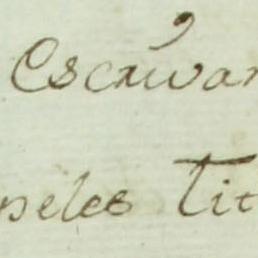 Escrivan
peles Tit